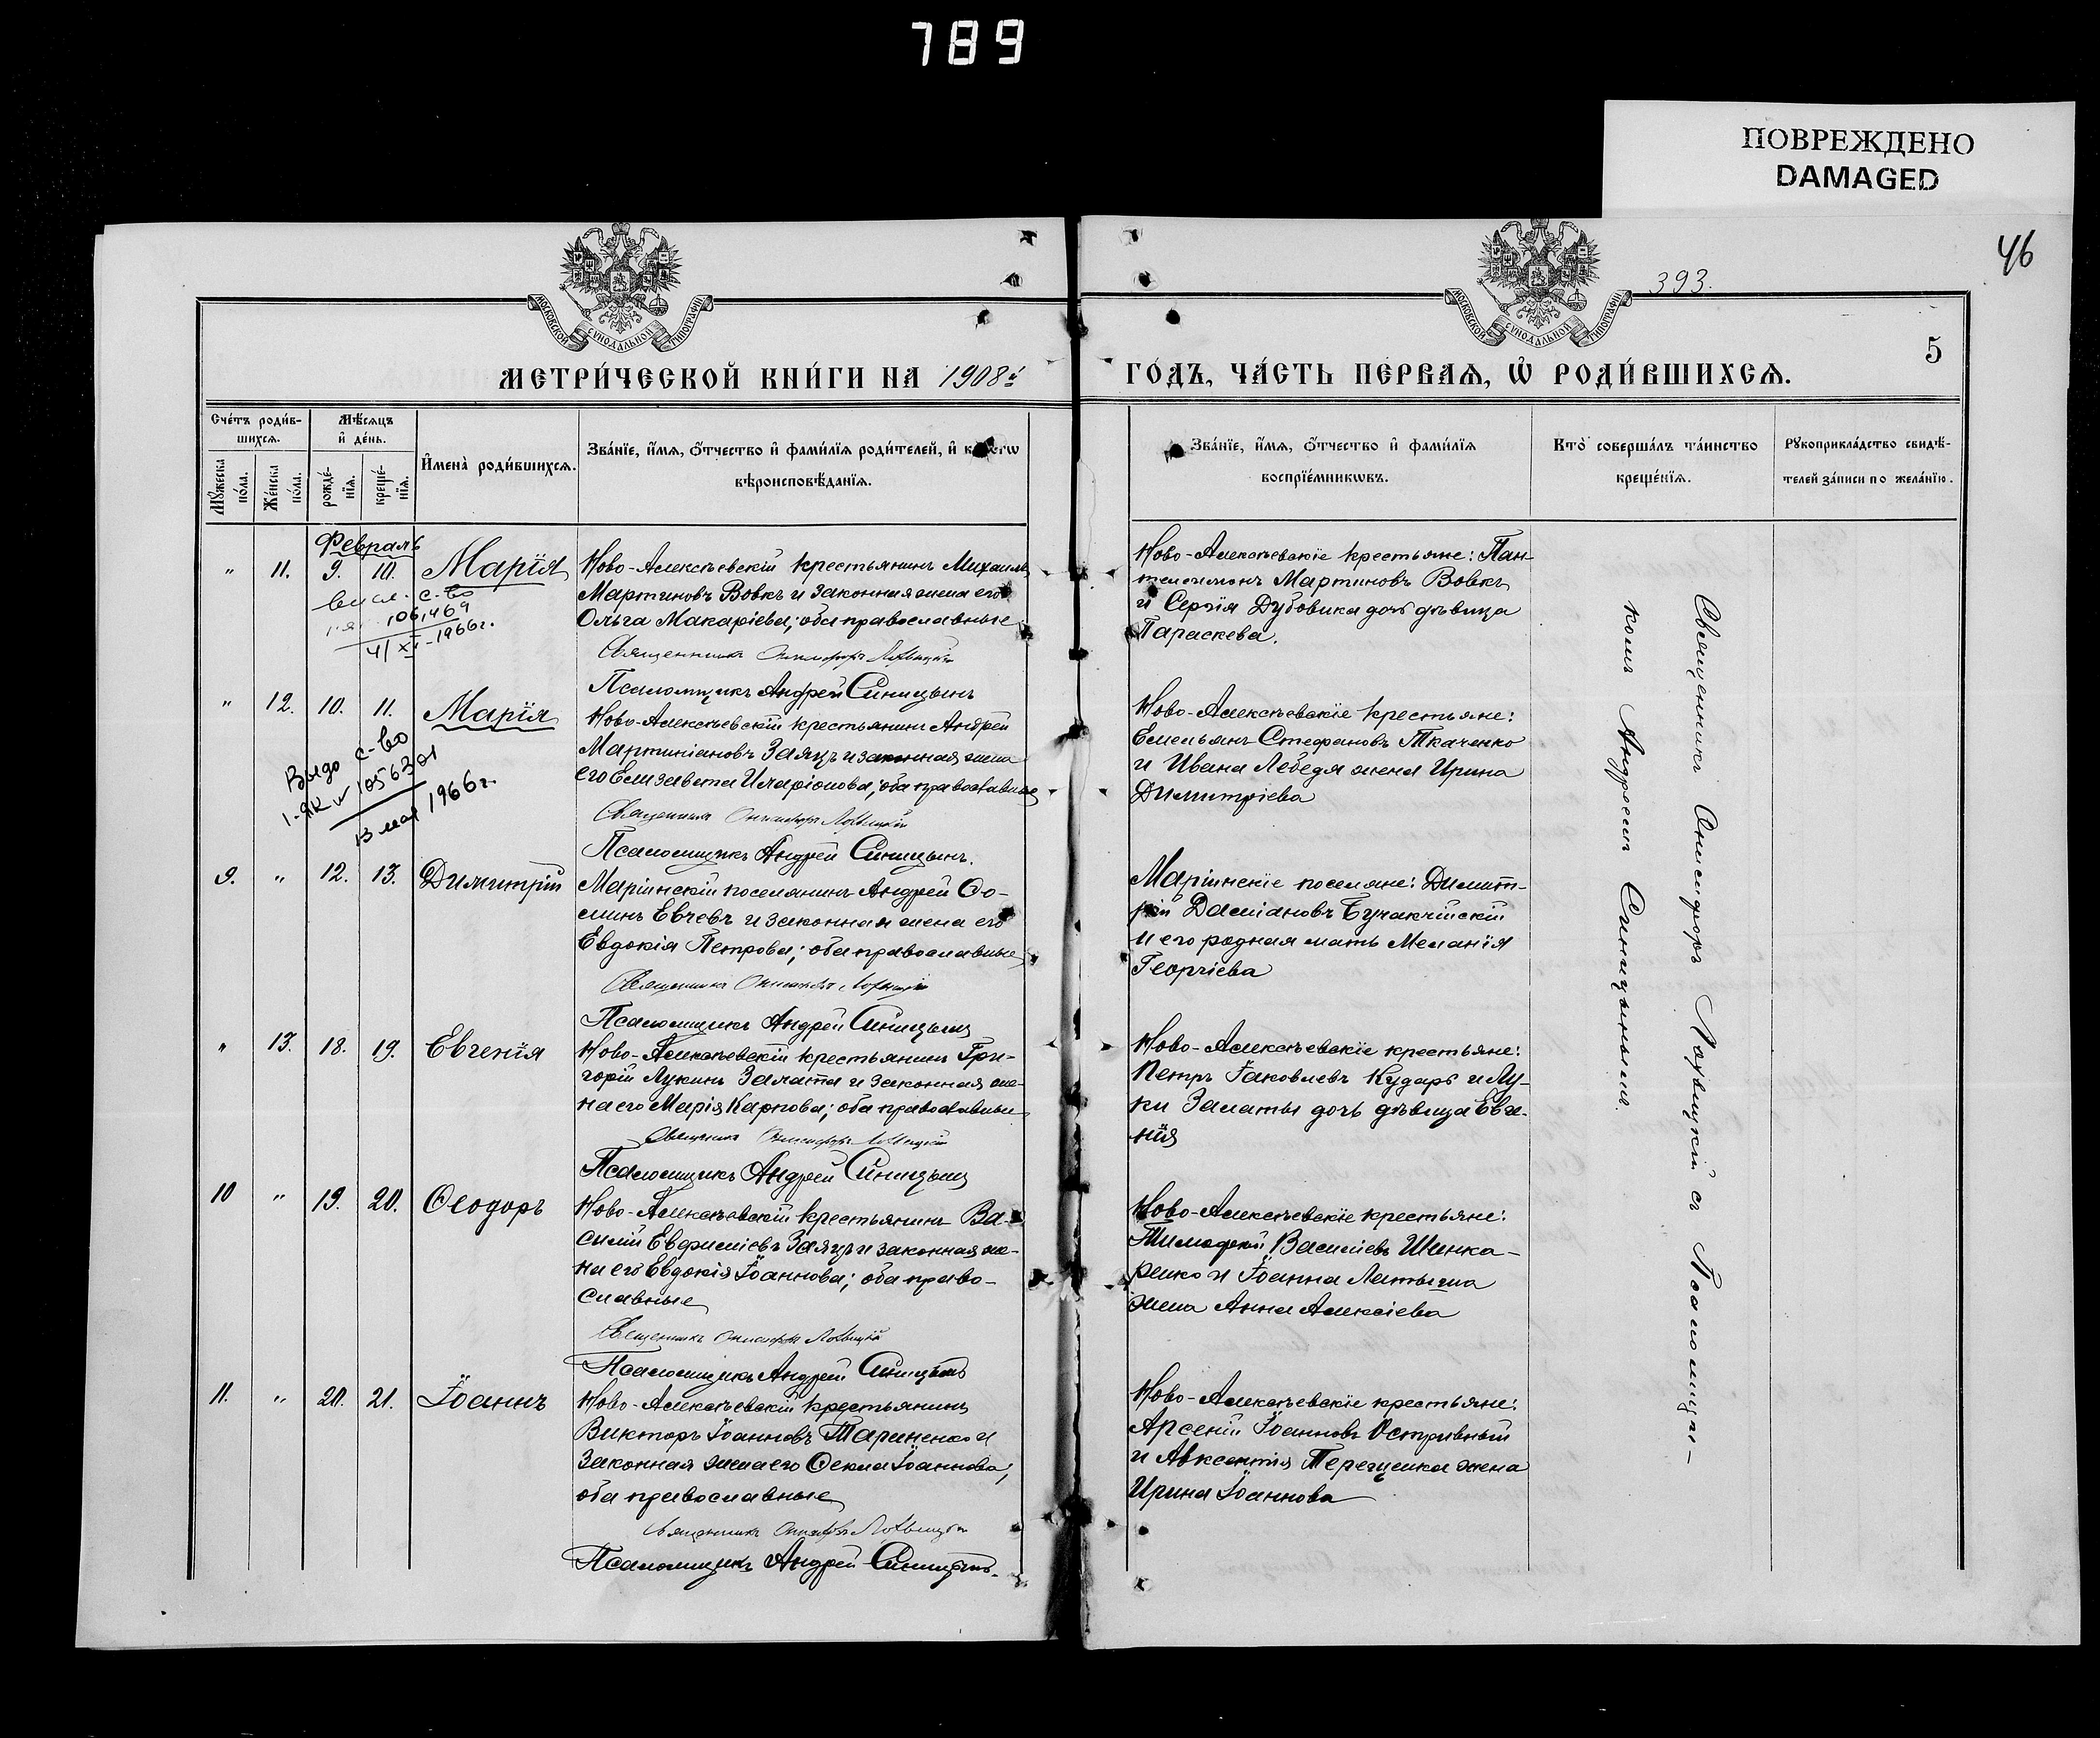 789
ПОВРЕЖДЕНО
DAMAGED
46
393.
5
МОСКОВСКОЙ СѴНОДАЛЬНОЙ ТИПОГРАФІИ
МОСКОВСКОЙ СѴНОДАЛЬНОЙ ТИПОГРАФІИ
МЕТРИ́ЧЕСКОЙ КНИ́ГИ НА 1908й
ГО́ДЪ, ЧА́СТЬ ПЕ́РВАѦ, Ѡ҆ РОДИ́ВШИХСѦ.
Сче́тъ роди́в-
шихсѧ.
Мꙋ́жеска
по́ла.
Же́нска
по́ла.
Мѣ́сѧцъ
и҆ де́нь.
рожде́-
нїѧ.
креще́-
нїѧ.
И҆мена̀ роди́вшихсѧ.
Зва́нїе, и҆́мѧ, ѻ҆́тчество и҆ фами́лїѧ роди́телей, и҆
вѣроисповѣ́данїѧ.
Зва́нїе, и҆́мѧ, ѻ҆́тчество и҆ фами́лїѧ
воспрїе́мникѡвъ.
Кто̀ соверша́лъ та́инство
креще́нїѧ.
Рꙋкоприкла́дство свидѣ́-
телей за́писи по жела́нїю.
Февраль
" 11. 9. 10. Марія
с-во
1061469
4/XI-1966г.
Ново-Алексѣевскій крестьянинъ Михаилъ
Мартиновъ Вовкъ и законная жена его
Ольга Макаріева; оба православные
Священникъ Онисифоръ Лохвицкій
Псаломщикъ Андрей Синицынъ
Ново-Алексѣевскіе крестьяне: Пан-
телеимонъ Мартиновъ Вовкъ
и Сергія Дубовика дочь дѣвица
Параскева.
" 12. 10. 11. Марія
Выдо с-во
I-ЯК № 1056301
13 мая 1966г.
Ново-Алексѣевскій крестьянинъ Андрей
Мартиніановъ Заяцъ и законная жена
его Елизавета Иларіонова; оба православные
Священникъ Онисифоръ Лохвицкій
Псаломщикъ Андрей Синицынъ.
Ново-Алексѣевскіе крестьяне:
Емельянъ Стефановъ Ткаченко
и Ивана Лебедя жена Ирина
Димитріева
9. " 12. 13. Димитрій
Маріинскій поселянинъ Андрей Ѳо-
минъ Евчевъ и законная жена его
Евдокія Петрова; оба православные
Священникъ Онисифоръ Лохвицкій
Псаломщикъ Андрей Синицынъ
Маріинскіе поселяне: Димит-
рій Даміановъ Бучакчійскій
и его родная мать Меланія
Георгіева
" 13. 18. 19. Евгенія
Ново-Алексѣевскій крестьянинъ Гри-
горій Лукинъ Залата и законная же-
на его Марія Карпова; оба православные
Священникъ Онисифоръ Лохвицкій
Псаломщикъ Андрей Синицынъ
Ново-Алексѣевскіе крестьяне:
Петръ Іаковлевъ Кударь и Лу-
ки Залаты дочь дѣвица Евге-
нія
10 " 19. 20. Ѳеодоръ
Ново-Алексѣевскій крестьянинъ Ва-
силій Евфиміевъ Заяцъ и законная же-
на его Евдокія Іоаннова; оба право-
славные
Священникъ Онисифоръ Лохвицкій
Псаломщикъ Андрей Синицынъ
Ново-Алексѣевскіе крестьяне:
Тимофей Василіевъ Шинка-
ренко и Іоанна Латыша
жена Анна Алексіева
11. " 20. 21. Іоаннъ
Ново-Алексѣевскій крестьянинъ
Викторъ Іоанновъ Тариненко и
законная жена его Ѳекла Іоаннова;
оба православные
Священникъ Онисифоръ Лохвицкій
Псаломщикъ Андрей Синицынъ.
Ново-Алексѣевскіе крестьяне:
Арсеній Іоанновъ Остривный
и Авксентія жена
Ирина Іоаннова
Священникъ Онисифоръ Лохвицкій съ Псаломщи-
комъ Андреемъ Синицынымъ.